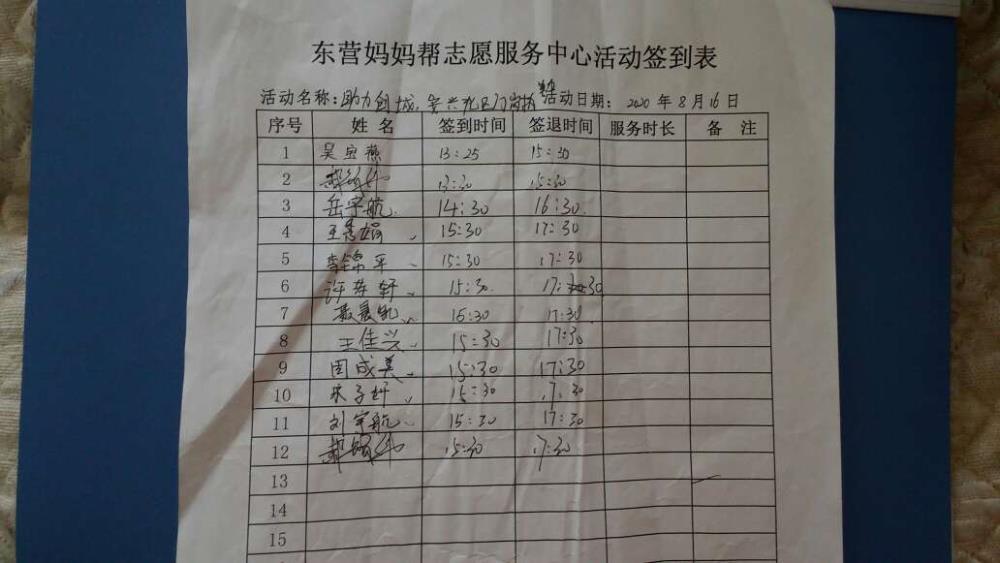 东营妈妈帮志愿服务中心活动签到表
活动名称：助力创城, 活动日期： 2020 年 8 月 16 日
序号 姓 名 签到时间 签退时间 服务时长 备 注
1 吴宝燕 13:25 15:30
2 13:30 15:30
3 岳宇航 14:30 16:30
4 15:30 17:30
5 15:30 17:30
6 15:30 17:30
7 17:30
8 王佳兴 15:30 17:30
9 周成美 15:30 17:30
10 宋子轩 15:30 17:30
11 刘宇航 15:30 17:30
12 15:30 17:30
13
14
15